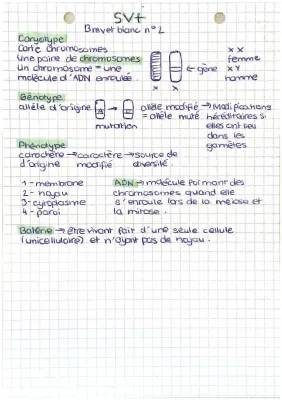 SVT
Brevet blanc n°2
Caryotype
Carte chromosomes
Une paire de chromosomes
Un chromosome = une
molécule d'ADN enroulée.
← gène
x x
femme
x y
homme
x x
Génotype
allèle d'origine → allèle modifié → Modifications
= allèle muté héréditaires si
mutation elles ont lieu
dans les
gamètes
Phénotype
caractère → caractère → source de
d'origine modifié diversité.
1 - membrane
2 - noyau
3 - cytoplasme
4 - paroi
ADN → molécule formant des
chromosomes quand elle
s'enroule lors de la méiose et
la mitose.
Batérie → être vivant fait d'une seule cellule
(unicellulaire) et n'ayant pas de noyau.